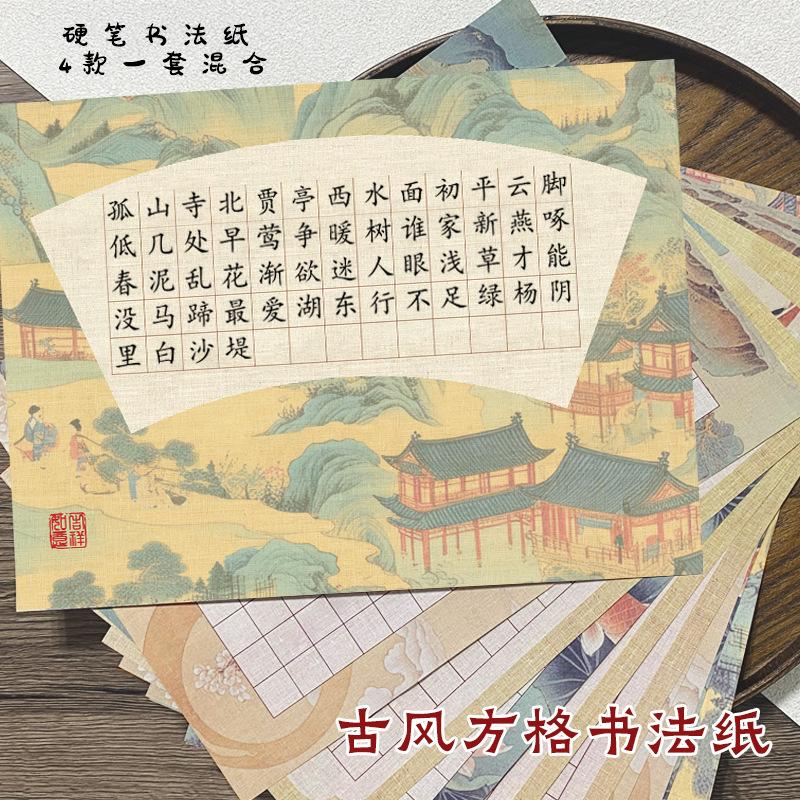 硬笔书法纸
4款一套混合
孤山寺北贾亭西水面初平云脚
低几处早莺争暖树谁家新燕啄
春泥乱花渐欲迷人眼浅草才能
没马蹄最爱湖东行不足绿杨阴
里白沙堤
吉祥
如意
古风方格书法纸